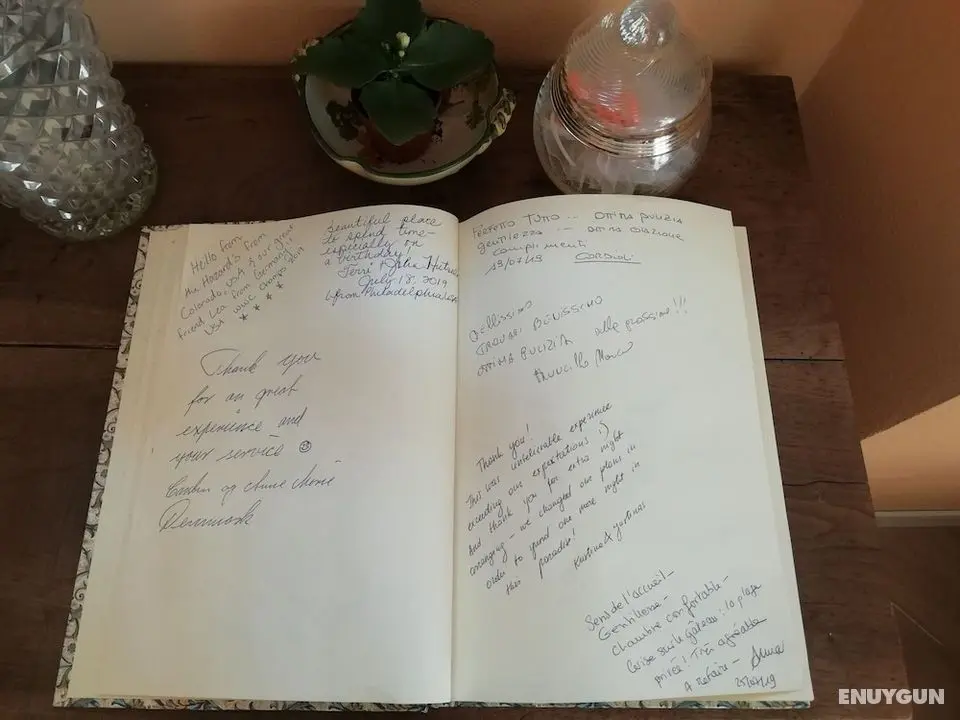 Hello from
the Hazard's from
Colorado, USA & our great
friend Lea from Germany!!
USA WWC Champs 2019
Beautiful place
to spend time -
especially on
a birthday!
Terri
July 18, 2019
from Philadelphia USA
Thank you
for an great
experience and
your service
og Anne Marie
Denmark
PERFETTO TUTTO... OTTIMA PULIZIA
gentilezza... OTTIMA COLAZIONE
complimenti
19/07/19
BELLISSIMO
TROVARSI BENISSIMO
OTTIMA PULIZIA alla prossima!!!
Thank you!
This was unbelievable experience
exceeding our expectations :)
And thank you for extra night
arranging - we changed our plans in
order to spend one more night in
this paradise!
Kristina & Justinas
Sens de l'accueil -
Gentillesse -
Chambre confortable -
Cerise sur le gâteau : la plage
privée ! Très agréable
A refaire - Anna
ENUYGUN